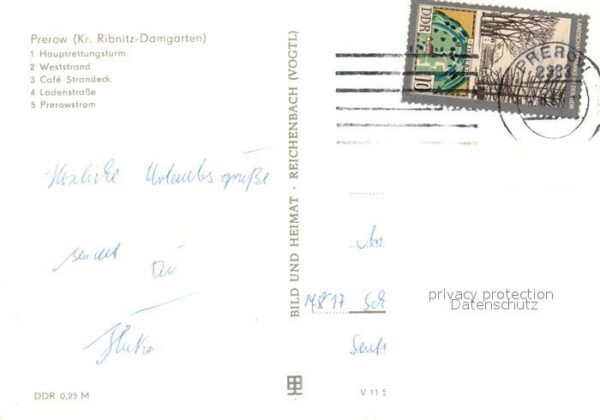 Prerow (Kr. Ribnitz-Damgarten)
1 Hauptrettungsturm
2 Weststrand
3 Café Strandeck
4 Ladenstraße
5 Prerowstrom
Herzliche Urlaubsgrüße
sendet Dir
DDR 0,25 M
BILD UND HEIMAT · REICHENBACH (VOGTL)
DDR
10
PREROW
2383
7817 Sch
privacy protection
Datenschutz
V 11 5